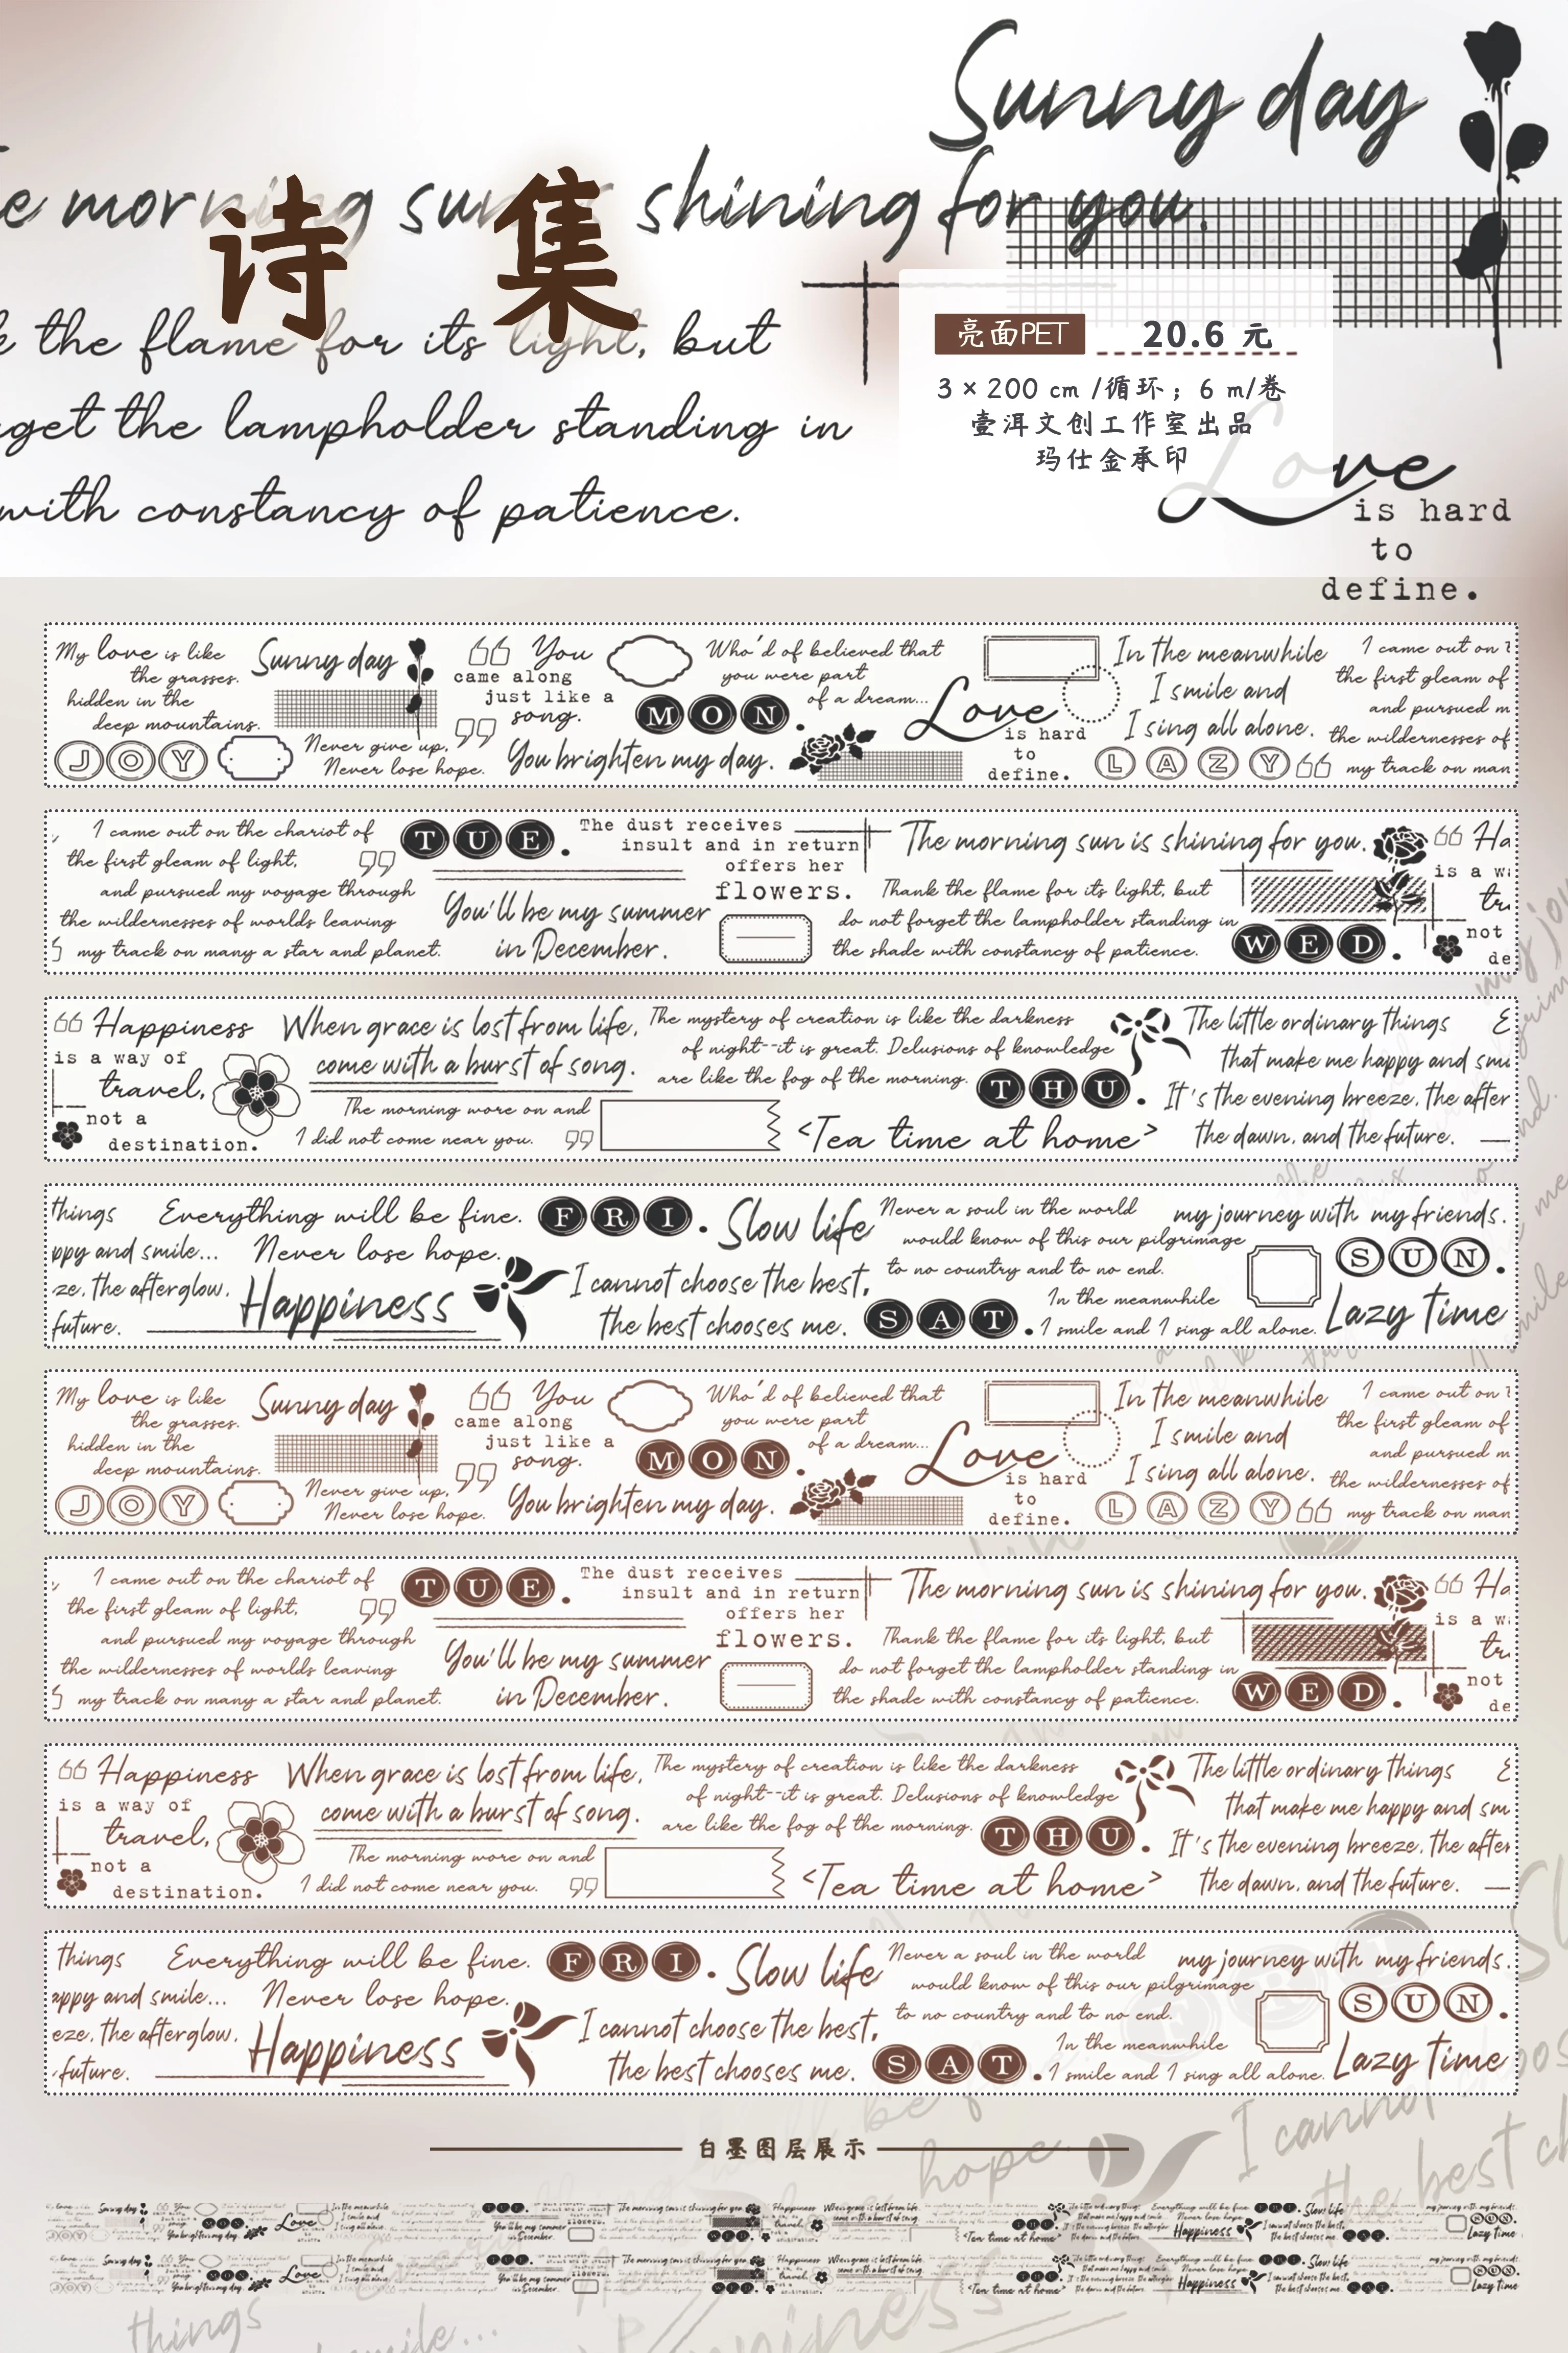 Sunny day
e morning sun is shining for you.
诗集
k the flame for its light, but
get the lampholder standing in
with constancy of patience.
亮面PET
20.6 元
3 × 200 cm /循环；6 m/卷
壹洱文创工作室出品
玛仕金承印
Love
is hard
to
define.
My love is like
the grasses.
hidden in the
deep mountains.
JOY
Sunny day
Never give up,
Never lose hope.
You
came along
just like a
song.
You brighten my day.
MON.
Who'd of believed that
you were part
of a dream...
Love
is hard
to
define.
In the meanwhile
I smile and
I sing all alone.
LAZY
I came out on t
the first gleam of
and pursued m
the wildernesses of
my track on man
I came out on the chariot of
the first gleam of light,
and pursued my voyage through
the wildernesses of worlds leaving
my track on many a star and planet.
TUE.
You'll be my summer
in December.
The dust receives
insult and in return
offers her
flowers.
The morning sun is shining for you.
Thank the flame for its light, but
do not forget the lampholder standing in
the shade with constancy of patience.
WED.
Ha
is a w
tr
not
de
Happiness
is a way of
travel,
not a
destination.
When grace is lost from life,
come with a burst of song.
The morning wore on and
I did not come near you.
The mystery of creation is like the darkness
of night--it is great. Delusions of knowledge
are like the fog of the morning.
THU.
<Tea time at home>
The little ordinary things
that make me happy and smi
It's the evening breeze, the after
the dawn, and the future.
things
ppy and smile...
ze, the afterglow,
future.
Everything will be fine.
Never lose hope.
Happiness
FRI.
Slow life
I cannot choose the best,
the best chooses me.
SAT.
Never a soul in the world
would know of this our pilgrimage
to no country and to no end.
In the meanwhile
I smile and I sing all alone.
my journey with my friends.
SUN.
Lazy Time
My love is like
the grasses.
hidden in the
deep mountains.
JOY
Sunny day
Never give up,
Never lose hope.
You
came along
just like a
song.
You brighten my day.
MON.
Who'd of believed that
you were part
of a dream...
Love
is hard
to
define.
In the meanwhile
I smile and
I sing all alone.
LAZY
I came out on t
the first gleam of
and pursued m
the wildernesses of
my track on man
I came out on the chariot of
the first gleam of light,
and pursued my voyage through
the wildernesses of worlds leaving
my track on many a star and planet.
TUE.
You'll be my summer
in December.
The dust receives
insult and in return
offers her
flowers.
The morning sun is shining for you.
Thank the flame for its light, but
do not forget the lampholder standing in
the shade with constancy of patience.
WED.
Ha
is a w
tr
not
de
Happiness
is a way of
travel,
not a
destination.
When grace is lost from life,
come with a burst of song.
The morning wore on and
I did not come near you.
The mystery of creation is like the darkness
of night--it is great. Delusions of knowledge
are like the fog of the morning.
THU.
<Tea time at home>
The little ordinary things
that make me happy and sm
It's the evening breeze, the after
the dawn, and the future.
things
appy and smile...
eze, the afterglow,
future.
Everything will be fine.
Never lose hope.
Happiness
FRI.
Slow life
I cannot choose the best,
the best chooses me.
SAT.
Never a soul in the world
would know of this our pilgrimage
to no country and to no end.
In the meanwhile
I smile and I sing all alone.
my journey with my friends.
SUN.
Lazy Time
白墨图层展示